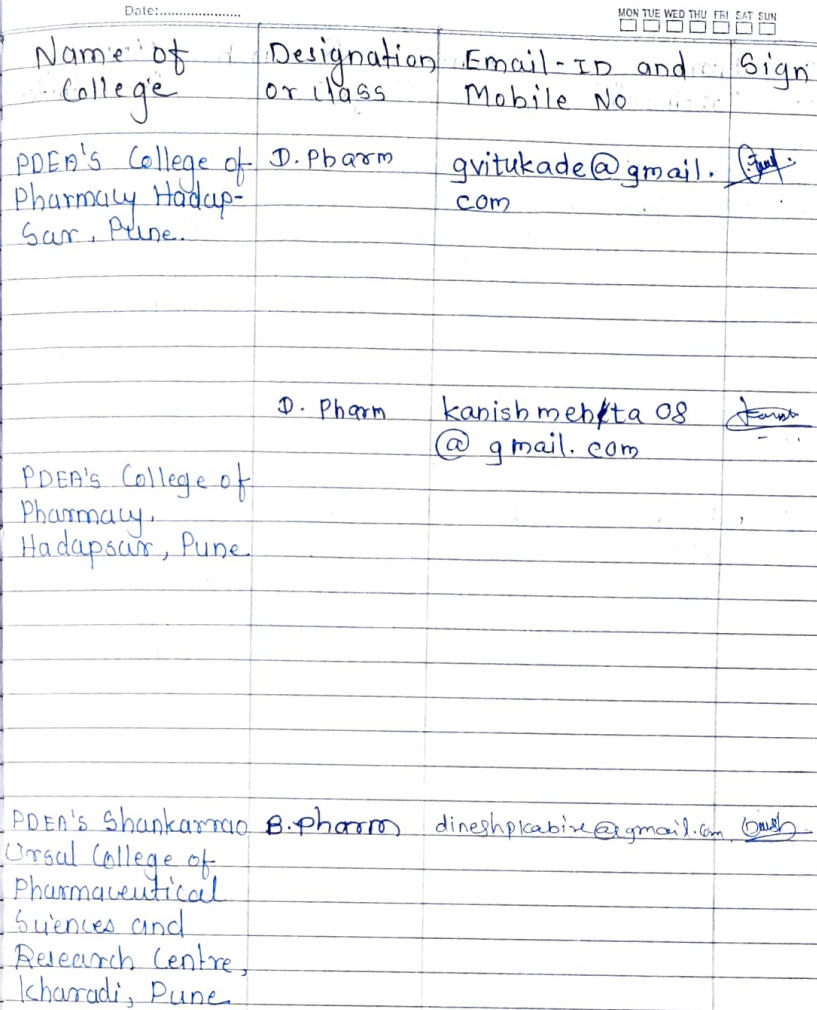 Date:.....................
MON TUE WED THU FRI SAT SUN
Name of College
Designation or class
Email-ID and Mobile No
Sign
PDEA's College of
Pharmacy Hadap-
Sar, Pune.
D. Pharm
gvitukade@gmail.
com
D. Pharm
kanishmehta 08
@ gmail. com
PDEA's College of
Pharmacy,
Hadapsar, Pune
PDEA's Shankarrao
Ursal College of
Pharmaceutical
Sciences and
Research Centre,
Kharadi, Pune
B.Pharm
dineshpkabire@gmail.com